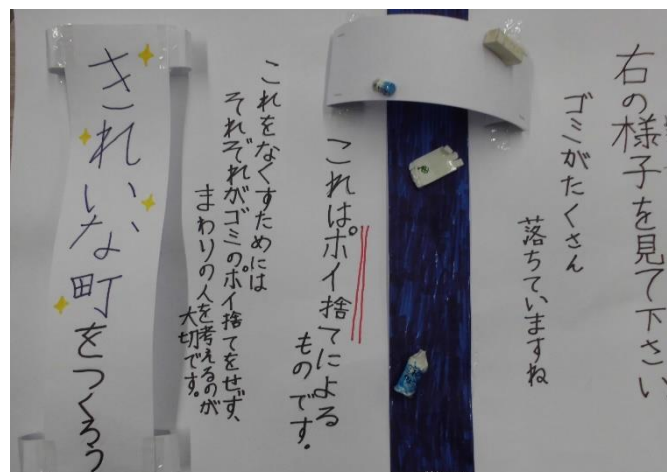 右の様子を見て下さい
ゴミがたくさん
落ちていますね
これはポイ捨てによる
ものです。
これをなくすためには
それぞれがゴミのポイ捨てをせず、
まわりの人を考えるのが
大切です。
きれいな町をつくろう